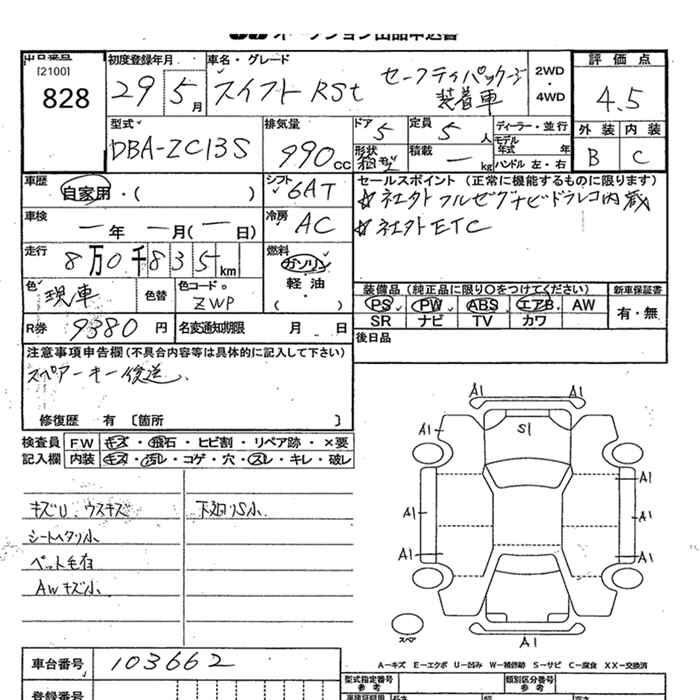 オークション出品申込書
出品番号
[2100]
828
初度登録年月
29 5月
車名・グレード
スイフト RSt セーフティパッケージ
装着車
2WD
・
4WD
評価点
4.5
外装 内装
B C
型式
DBA-ZC13S
排気量
990cc
ドア 5
形状
定員 5人
積載 ー kg
ディーラー・並行
モデル
年式 年
ハンドル 左・右
車歴
自家用・( )
シフト
6AT
セールスポイント(正常に機能するものに限ります)
☆社外フルセグナビドラレコ内蔵
☆社外ETC
車検
ー年 ー月(ー日)
冷房
AC
走行
8万0千835km
燃料
ガソリン
軽油
( )
色
現車
色替
色コード。
ZWP
装備品(純正品に限り○をつけてください)
PS PW ABS エアB AW
SR ナビ TV カワ
新車保証書
有・無
R券 9380円
名変通知期限 月 日
後日品
注意事項申告欄(不具合内容等は具体的に記入して下さい)
スペアーキー後送
修復歴 有 〔箇所 〕
検査員 FW キズ・飛石・ヒビ割・リペア跡・×要
記入欄 内装 キズ・汚レ・コゲ・穴・スレ・キレ・破レ
キズU.ウスキズ
シートヘタリ小
ペット毛有
AWキズ小
下廻りS小
A1 A1
S1
A1
A1
A1
A1
A1
A1
A1
スペア
A－キズ E－エクボ U－凹み W－補修跡 S－サビ C－腐食 XX－交換済
車台番号 103662
型式指定番号
参考
類別区分番号
参考
登録番号